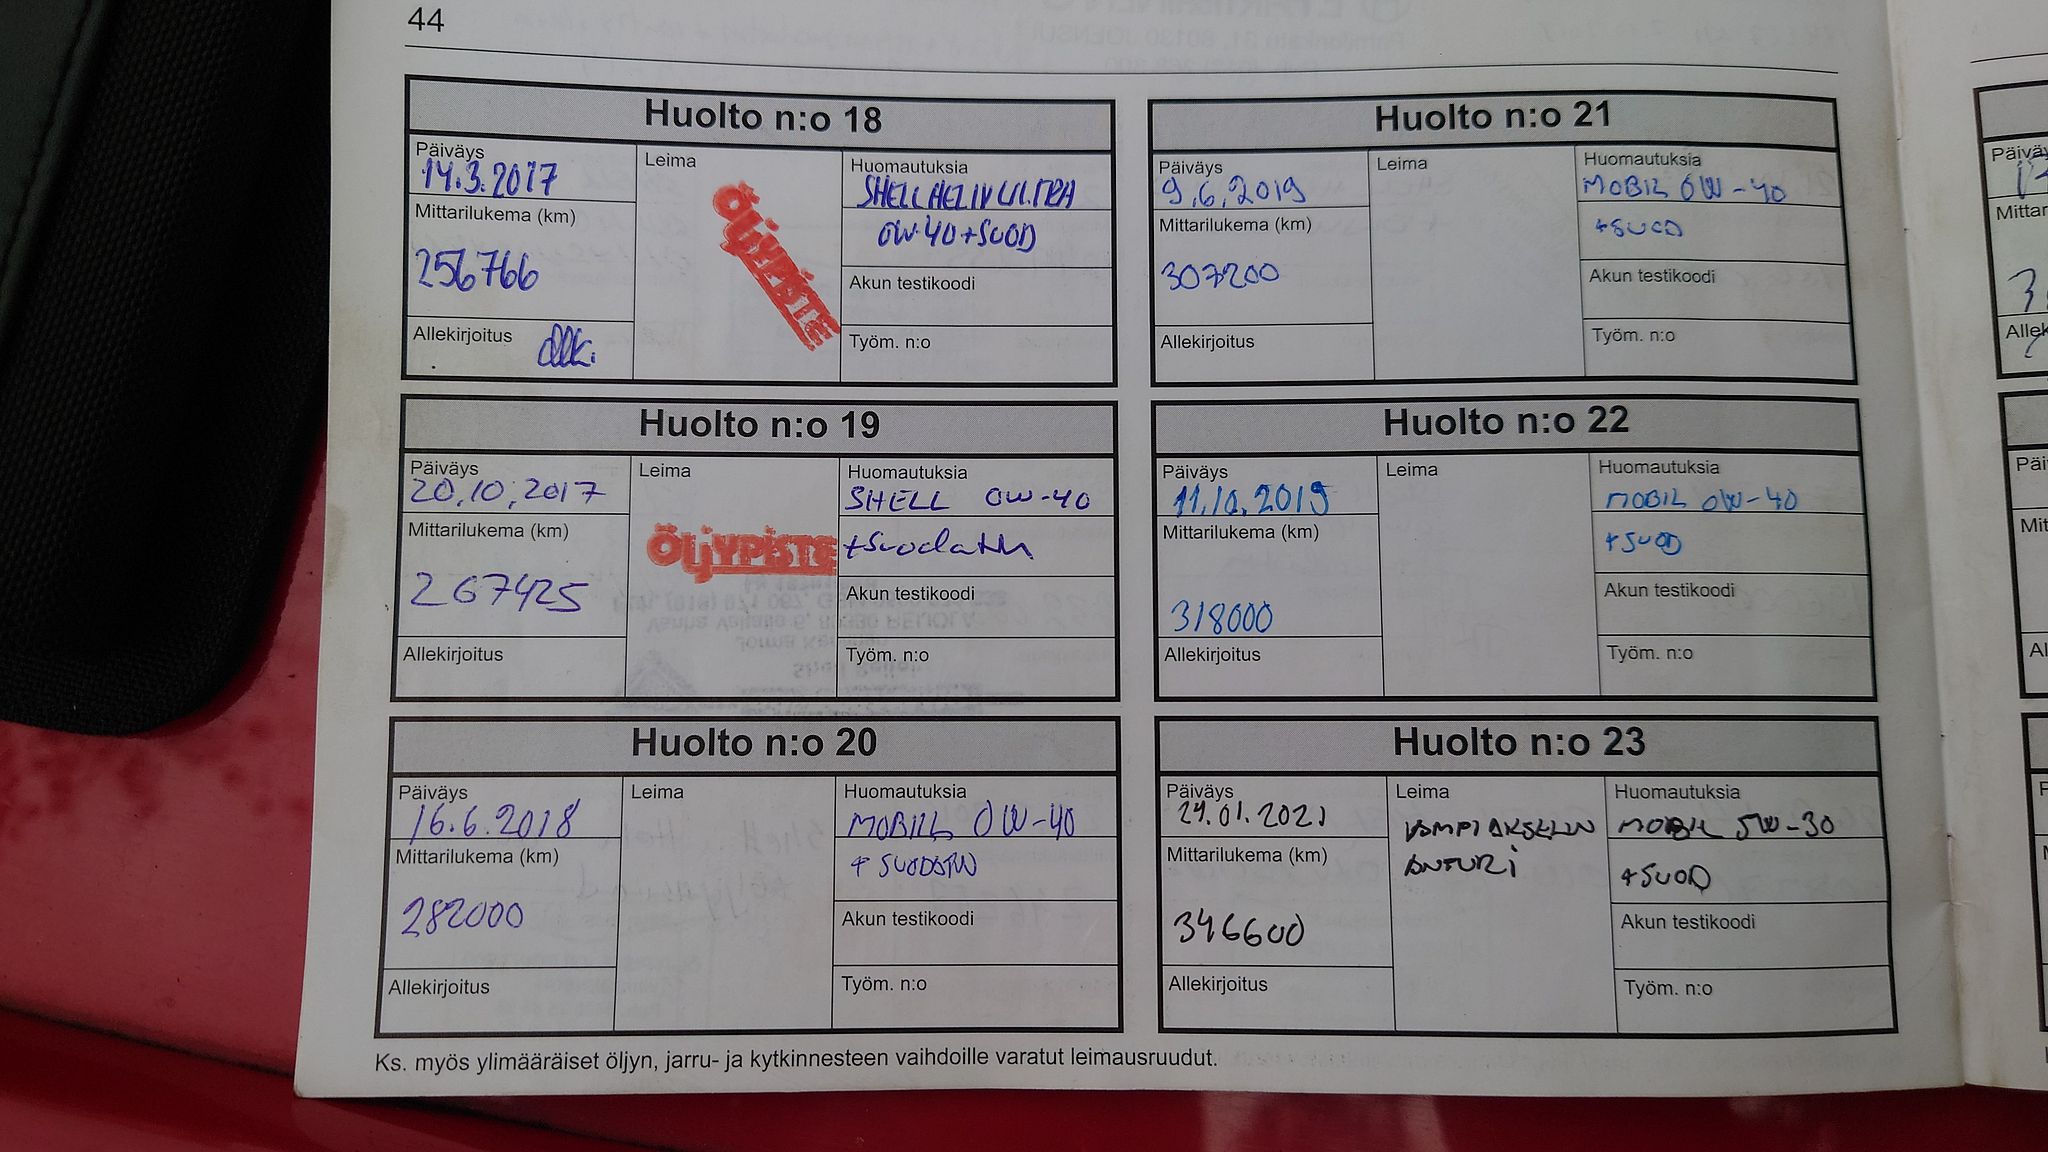 44
Huolto n:o 18
Päiväys
14.3.2017
Mittarilukema (km)
256766
Allekirjoitus
Leima
ÖLJYPISTE
Huomautuksia
SHELL HELIX ULTRA
0W-40+SUOD
Akun testikoodi
Työm. n:o
Huolto n:o 19
Päiväys
20.10.2017
Mittarilukema (km)
267425
Allekirjoitus
Leima
ÖLJYPISTE
Huomautuksia
SHELL 0W-40
Akun testikoodi
Työm. n:o
Huolto n:o 20
Päiväys
16.6.2018
Mittarilukema (km)
282000
Allekirjoitus
Leima
Huomautuksia
0W-40
Akun testikoodi
Työm. n:o
Huolto n:o 21
Päiväys
9.6.2019
Mittarilukema (km)
307200
Allekirjoitus
Leima
Huomautuksia
MOBIL 0W-40
+SUOD
Akun testikoodi
Työm. n:o
Huolto n:o 22
Päiväys
11.10.2019
Mittarilukema (km)
318000
Allekirjoitus
Leima
Huomautuksia
MOBIL 0W-40
+SUOD
Akun testikoodi
Työm. n:o
Huolto n:o 23
Päiväys
24.01.2021
Mittarilukema (km)
346600
Allekirjoitus
Leima
ANTURI
Huomautuksia
MOBIL 5W-30
+SUOD
Akun testikoodi
Työm. n:o
Ks. myös ylimääräiset öljyn, jarru- ja kytkinnesteen vaihdoille varatut leimausruudut.